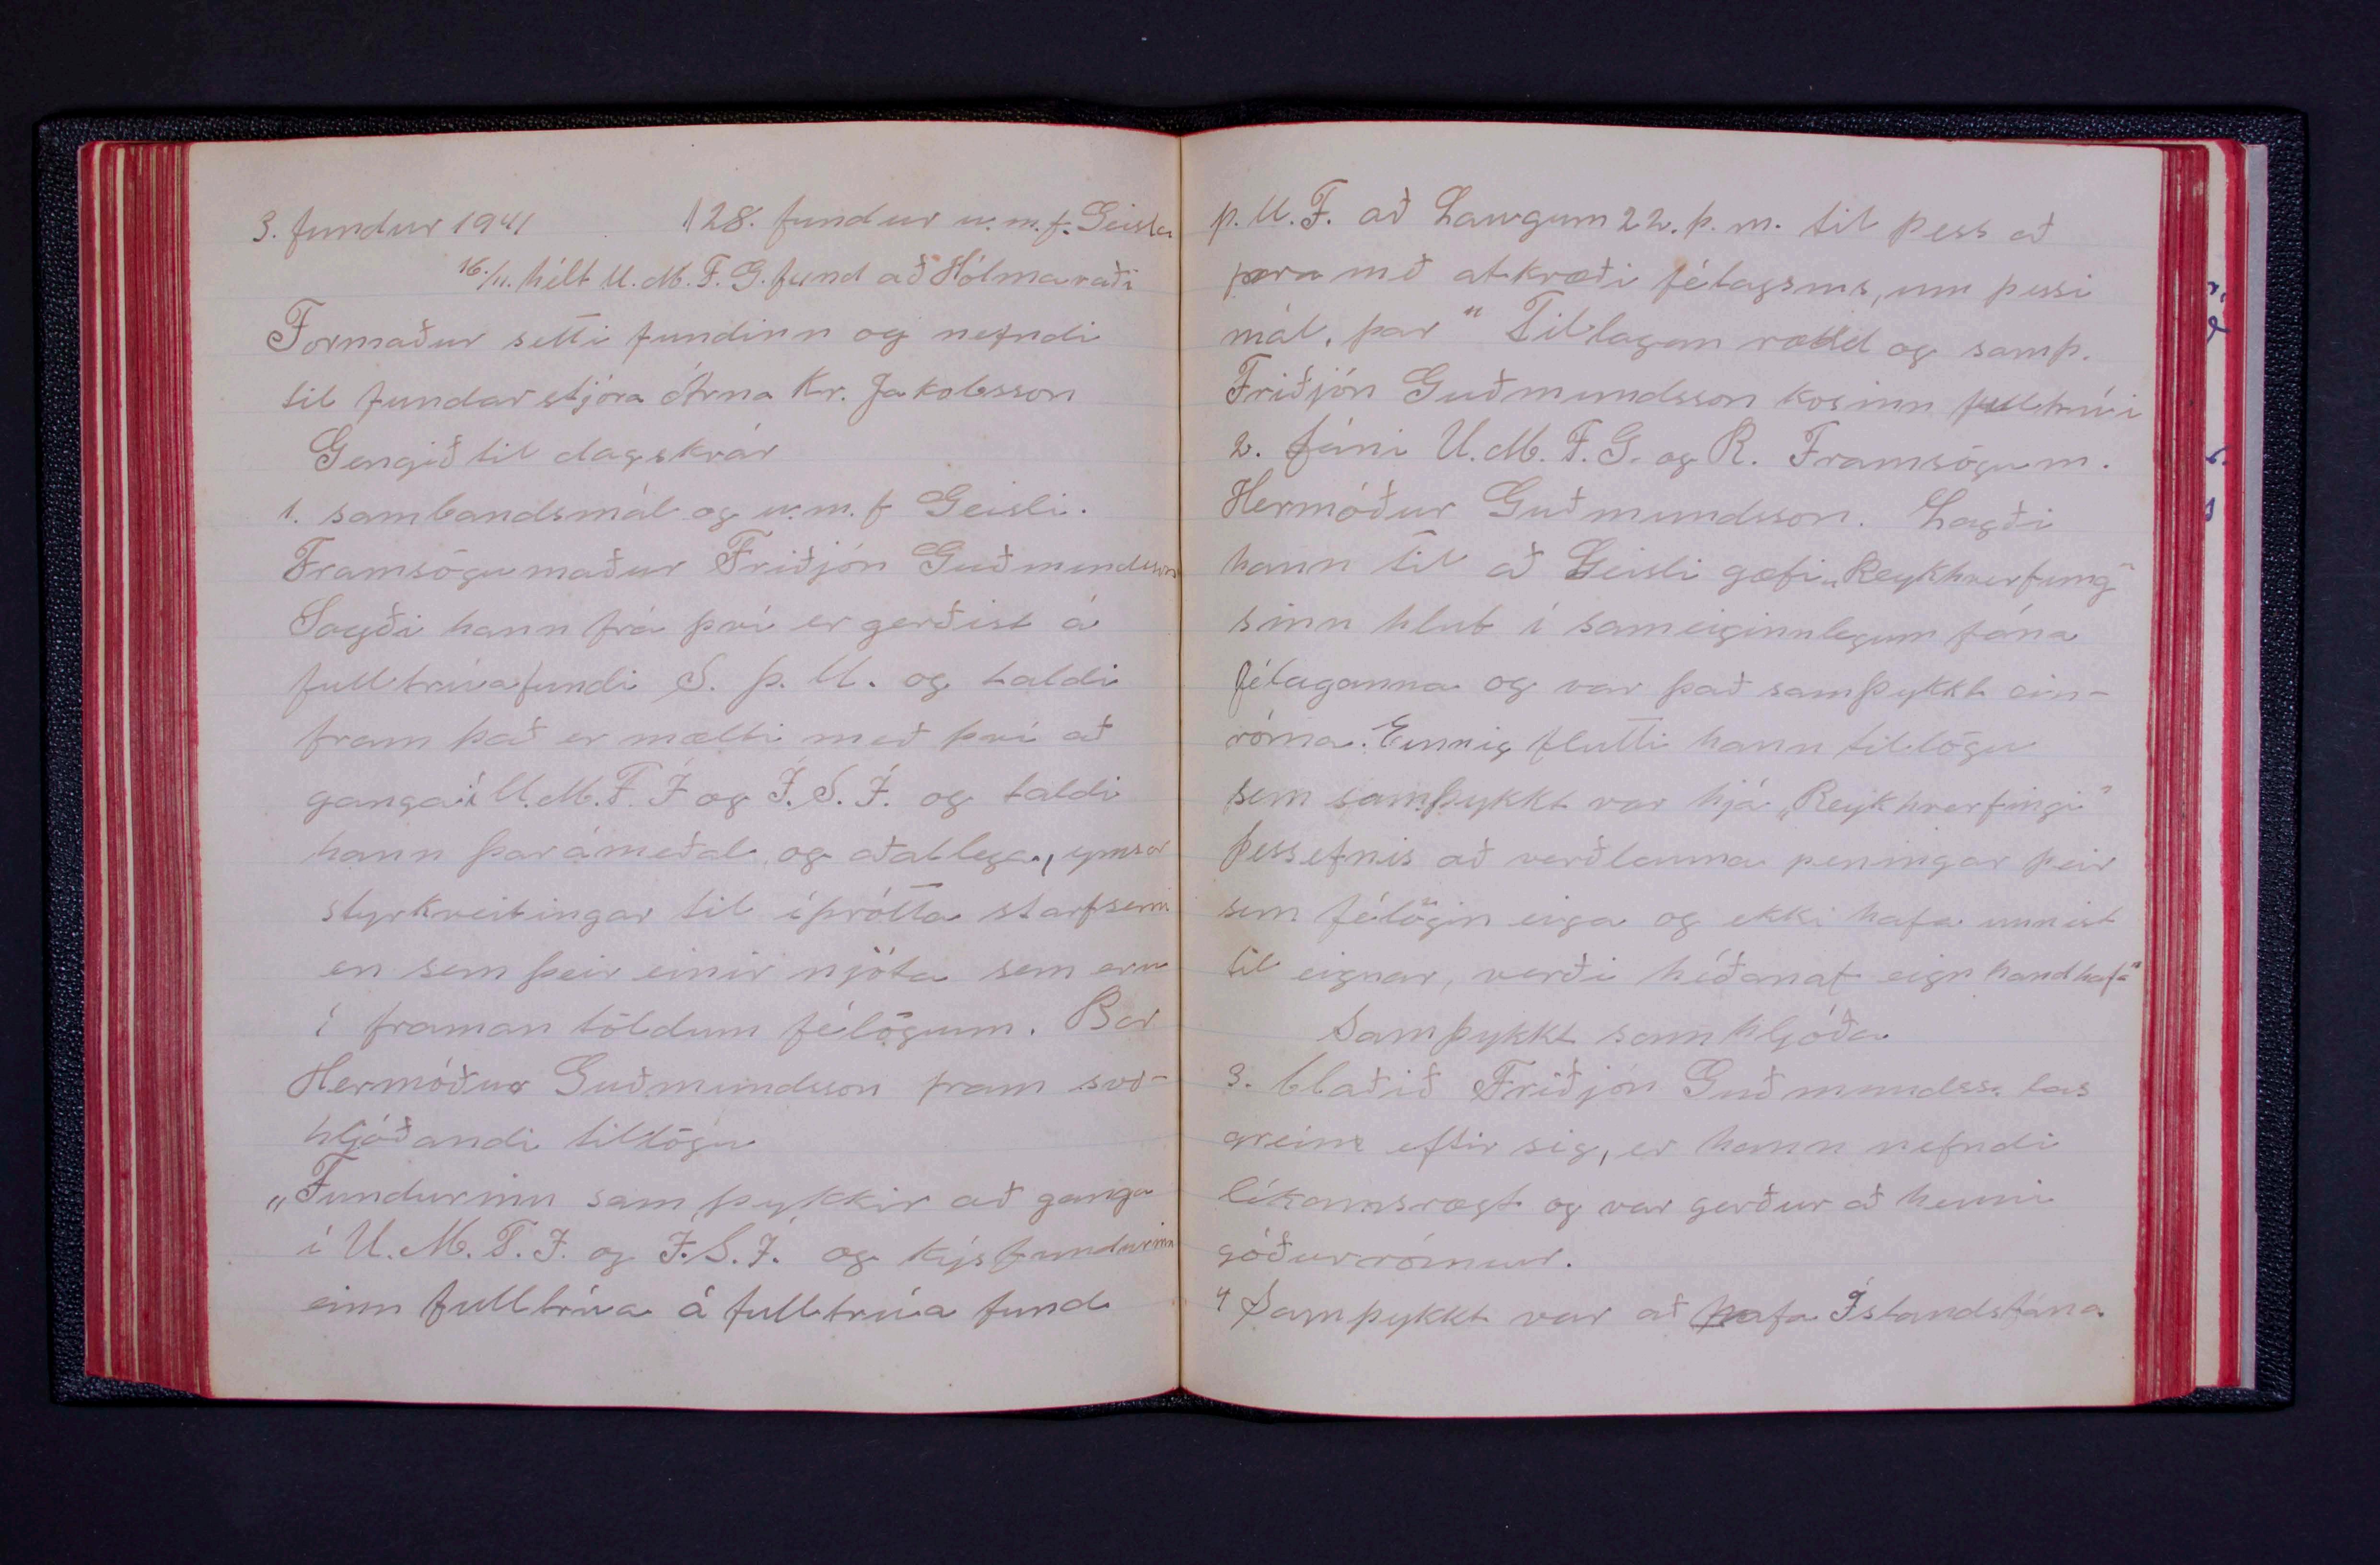 3. fundur 1941 128. fundur u.m.f. Geisla
16./11. hélt U.M.F.G. fund að Hólmavaði
Formaður setti fundinn og nefndi
til fundarstjóra Árna Kr. Jakobsson
Gengið til dagskrár
1. sambandsmál og u.m.f Geisli.
Framsögumaður Friðjón Guðmundsson
Sagði hann frá því er gerðist á
fulltrúafundi S.þ.U. og taldi
fram það er mælti með því að
ganga í U.M.F.Í og Í.S.Í. og taldi
hann þar ámeðal og aðallega, ymsar
styrkveitingar til íþrótta starfsemi
en sem þeir einir njóta sem eru
í framan töldum félögum. Bar
Hermóður Guðmundsson fram svo-
hljóðandi tillögu
„Fundurinn samþykkir að ganga
í U.M.F.Í. og Í.S.Í. og kýs fundurinn
einn fulltrúa á fulltrúa fund
þ.U.F. að Laugum 22. þ.m. til þess að
fara mð atkvæði félagsins, um þessi
mál, þar" Tillagan rædd og samþ.
Friðjón Guðmundsson kosinn fulltrúi
2. fáni U.M.F.G. og R. Framsögum.
Hermóður Guðmundsson. Lagði
hann til að Geisli gæfi „Reykhverfung"
sinn hlut í sameiginnlegum fána
félaganna og var það samþykkt ein-
róma. Einnig flutti hann tillögu
sem samþykkt var hjá „Reykhverfingi"
þess efnis að verðlauna peningar þeir
sem félögin eiga og ekki hafa unnist
til eignar, verði héðanaf eign handhafa"
Samþykkt samhljóða
3. blaðið Friðjón Guðmundss. las
grein eftir sig, er hann nefndi
líkamsrægt og var gerður að henni
góðurrómur.
4 Samþykkt var að hafa Íslandsfána